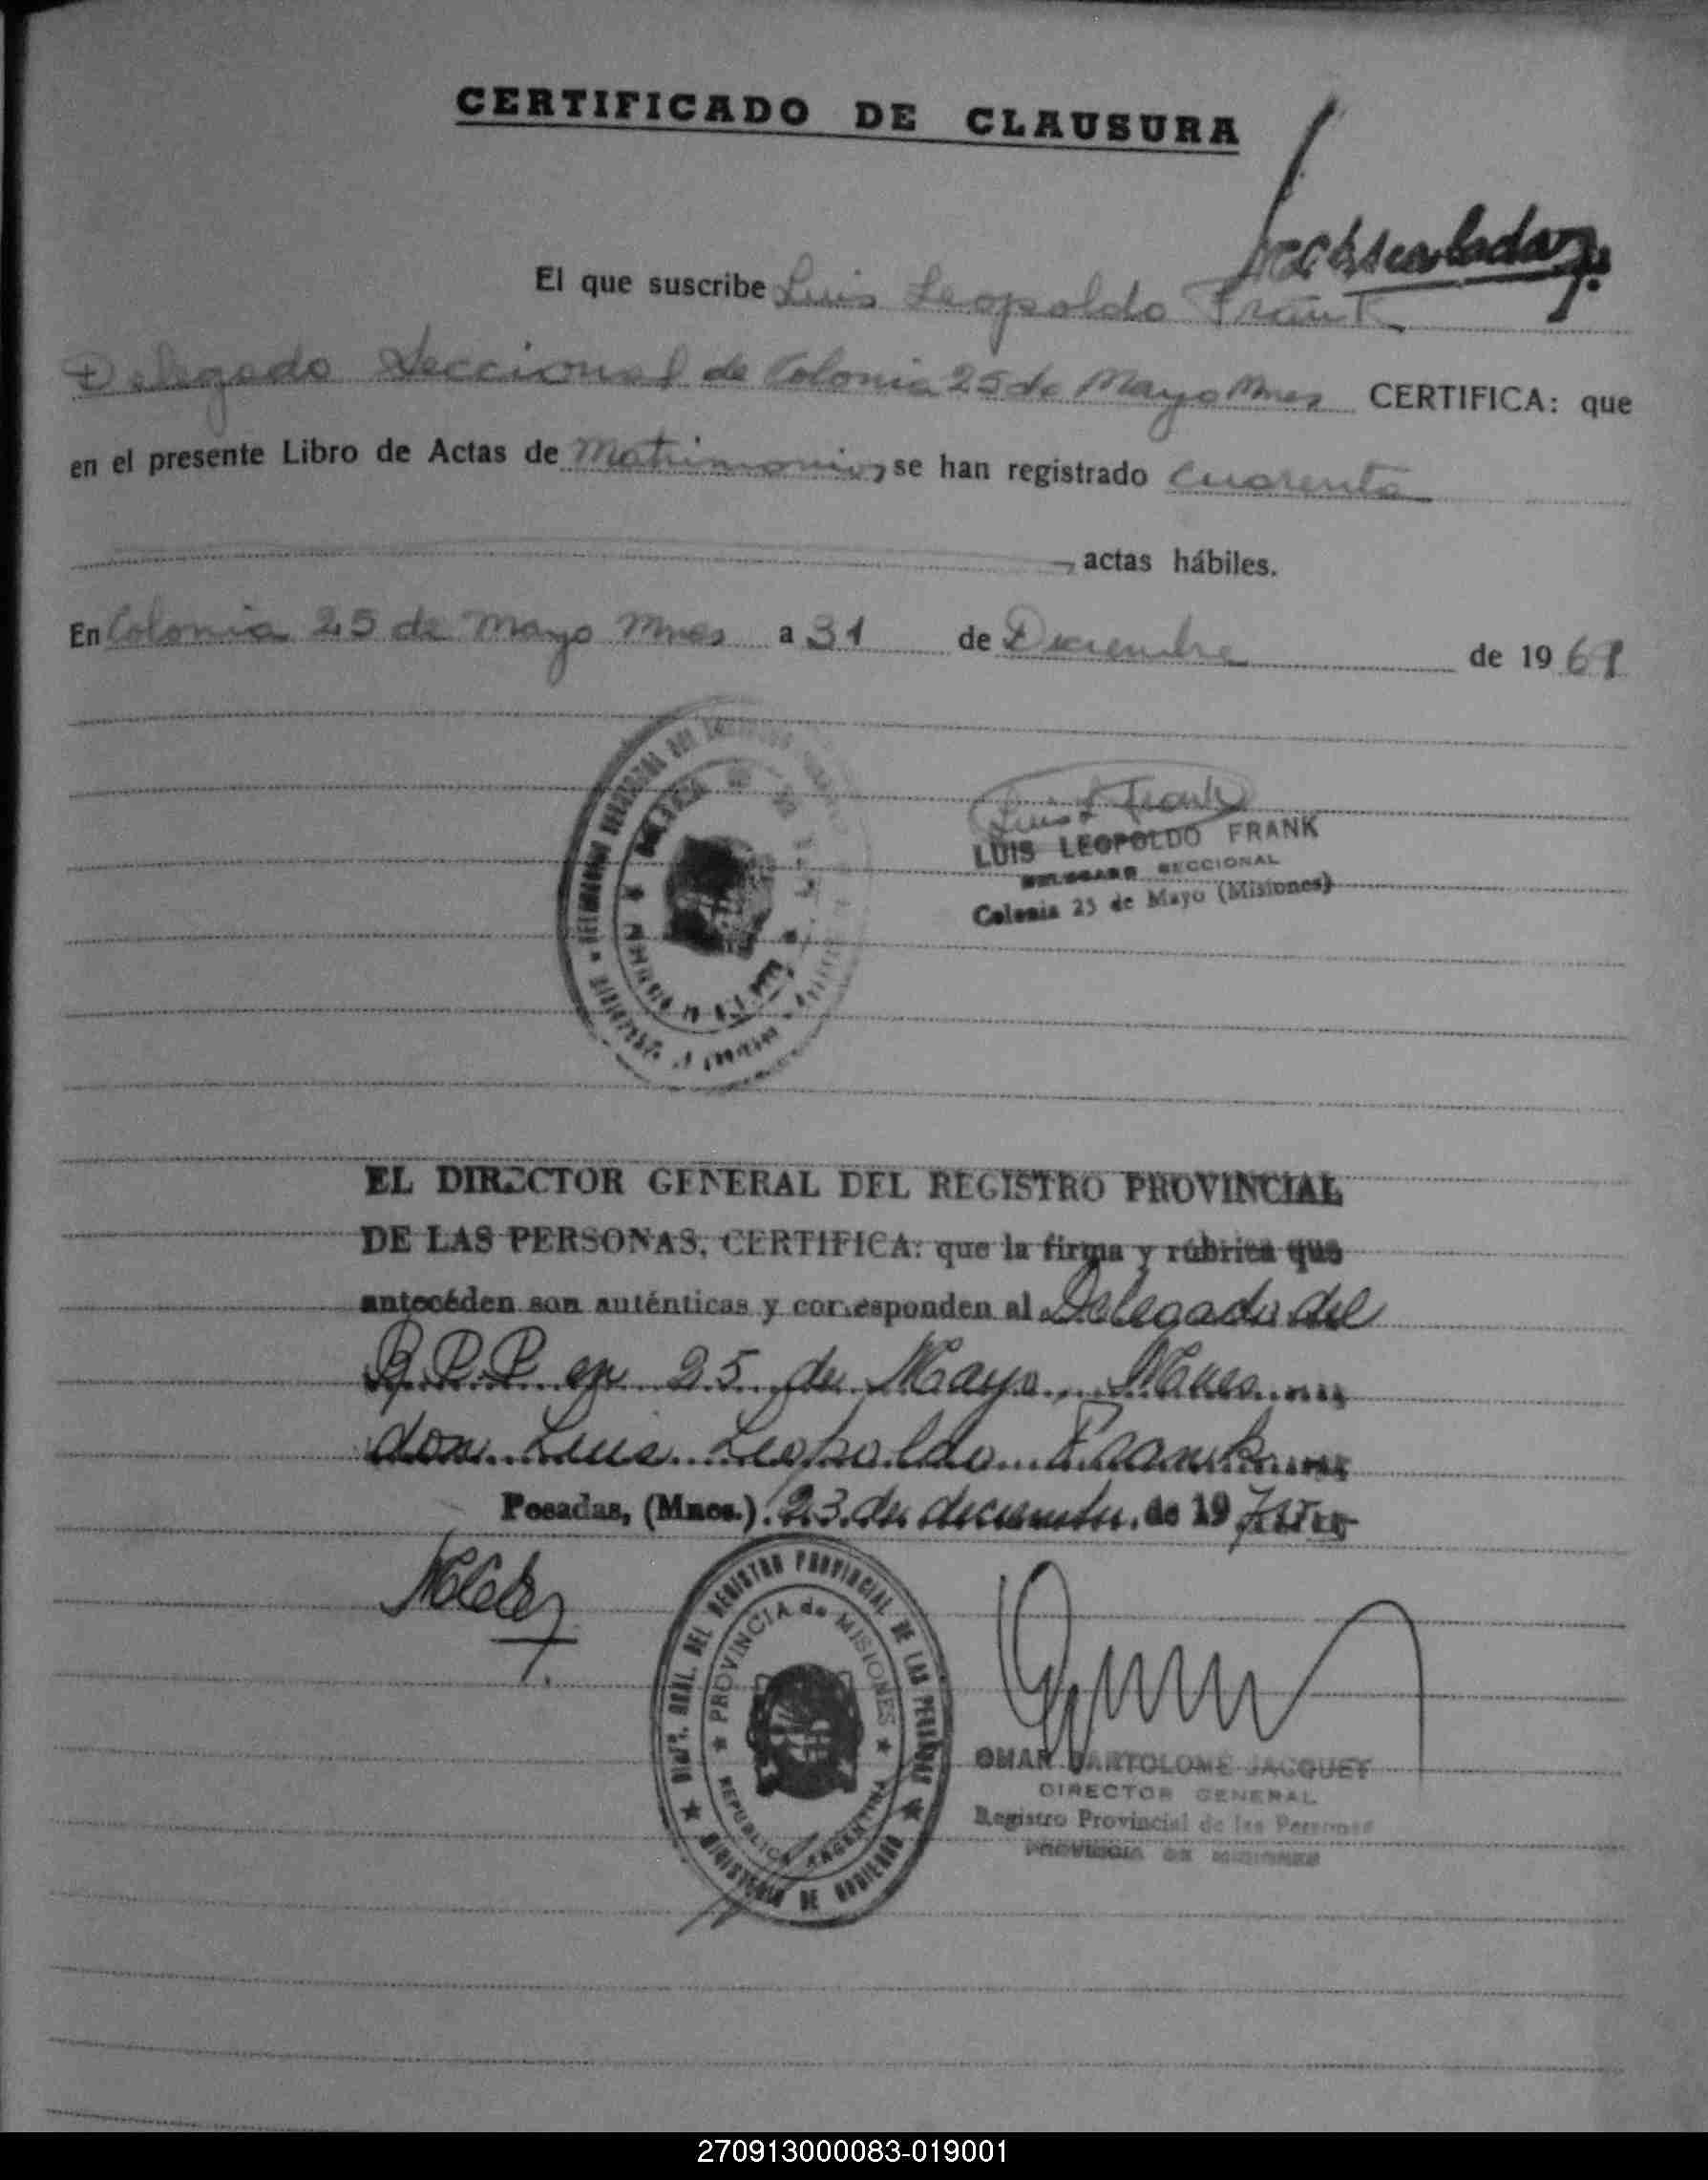 CERTIFICADO DE CLAUSURA
El que suscribe Luis Leopoldo Frank
Delegado Seccional de Colonia 25 de Mayo Mnes CERTIFICA: que
en el presente Libro de Actas de Matrimonios se han registrado cuarenta
actas hábiles.
En Colonia 25 de Mayo Mnes a 31 de Diciembre de 196
Luis L Frank
LUIS LEOPOLDO FRANK
DELEGADO SECCIONAL
Colonia 25 de Mayo (Misiones)
EL DIRECTOR GENERAL DEL REGISTRO PROVINCIAL
DE LAS PERSONAS, CERTIFICA: que la firma y rúbrica que
antecéden son auténticas y corresponden al Delegado del
R.P.P. en 25 de Mayo, Mnes
don Luis Leopoldo Frank
Posadas, (Mnes.) 23 de diciembre de 19
DIRº. GRAL. DEL REGISTRO PROVINCIAL DE LAS PERSONAS
PROVINCIA de MISIONES
REPUBLICA ARGENTINA
MINISTERIO DE GOBIERNO
OMAR BARTOLOME JACQUET
DIRECTOR GENERAL
Registro Provincial de las Personas
PROVINCIA DE MISIONES
270913000083-019001